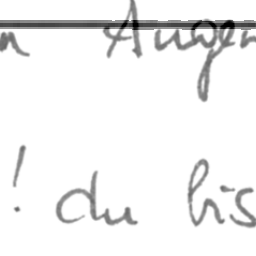 n Augen
! du bis